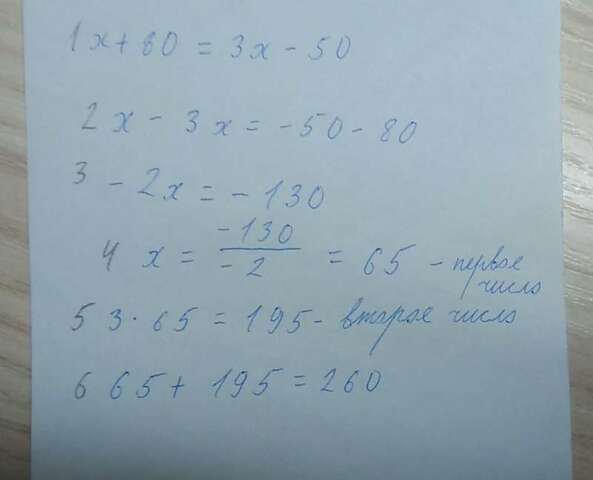 1 x + 80 = 3x - 50
2 x - 3x = -50 - 80
3 - 2x = - 130
4 x = -130 / -2 = 65 - первое число
5 3 · 65 = 195 - второе число
6 65 + 195 = 260